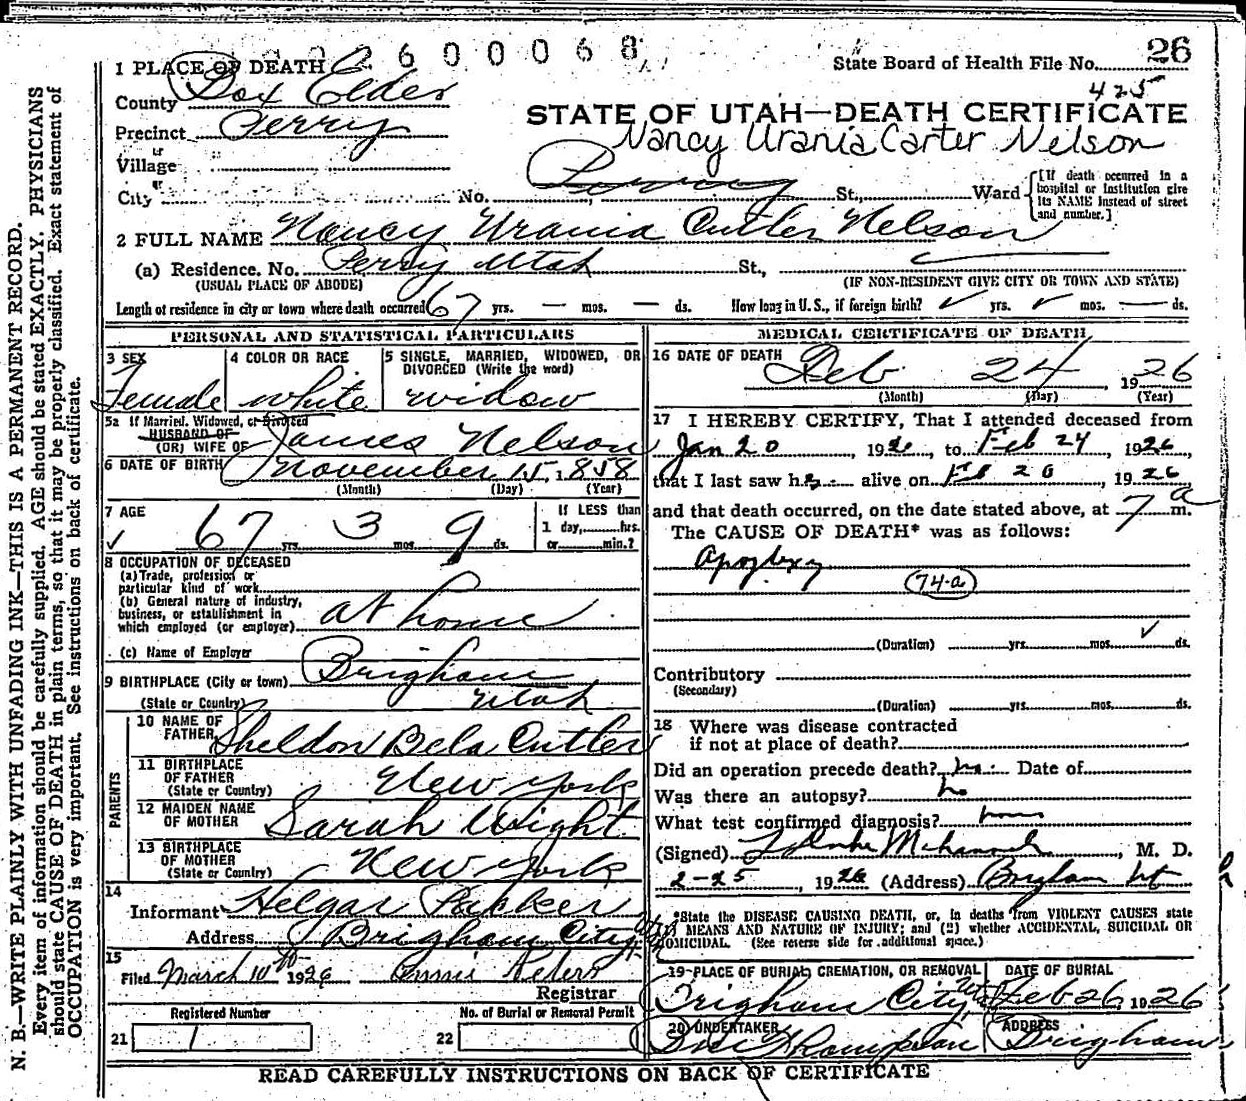 2600068
26
State Board of Health File No.
425
1 PLACE OF DEATH
County Box Elder
Precinct Perry
or
Village
or
City No. St., Ward
[If death occurred in a hospital or institution give its NAME instead of street and number.]
STATE OF UTAH—DEATH CERTIFICATE
Nancy Urania Carter Nelson
2 FULL NAME Nancy Urania Cutler Nelson
(a) Residence. No. Perry Utah St.,
(USUAL PLACE OF ABODE) (IF NON-RESIDENT GIVE CITY OR TOWN AND STATE)
Length of residence in city or town where death occurred 67 yrs. — mos. — ds. How long in U. S., if foreign birth? ✓ yrs. ✓ mos. — ds.
PERSONAL AND STATISTICAL PARTICULARS
3 SEX
Female
4 COLOR OR RACE
white
5 SINGLE, MARRIED, WIDOWED, OR DIVORCED (Write the word)
widow
5a If Married, Widowed, or Divorced
HUSBAND OF
(OR) WIFE OF James Nelson
6 DATE OF BIRTH November 15, 1858
(Month) (Day) (Year)
7 AGE
✓ 67 yrs. 3 mos. 9 ds.
If LESS than
1 day, hrs.
or min.?
8 OCCUPATION OF DECEASED
(a) Trade, profession or
particular kind of work
(b) General nature of industry,
business, or establishment in
which employed (or employer) at home
(c) Name of Employer
9 BIRTHPLACE (City or town) Brigham
(State or Country) Utah
PARENTS
10 NAME OF
FATHER Sheldon Bela Cutler
11 BIRTHPLACE
OF FATHER
(State or Country) New York
12 MAIDEN NAME
OF MOTHER Sarah Wight
13 BIRTHPLACE
OF MOTHER
(State or Country) New York
14
Informant Helgar
Address Brigham City
15
Filed March 10th 1926
Registrar
Registered Number
21 1
No. of Burial or Removal Permit
22
MEDICAL CERTIFICATE OF DEATH
16 DATE OF DEATH
Feb 24, 1926
(Month) (Day) (Year)
17 I HEREBY CERTIFY, That I attended deceased from
Jan 20, 1926, to Feb 24, 1926,
that I last saw her alive on Feb 20, 1926
and that death occurred, on the date stated above, at 7 a m.
The CAUSE OF DEATH* was as follows:
Apoplexy
74-a
(Duration) yrs. mos. ✓ ds.
Contributory
(Secondary)
(Duration) yrs. mos. ds.
18 Where was disease contracted
if not at place of death?
Did an operation precede death? no Date of
Was there an autopsy? no
What test confirmed diagnosis?
(Signed) M. D.
2-25, 1926 (Address) Brigham Ut
*State the DISEASE CAUSING DEATH, or, in deaths from VIOLENT CAUSES state
(1) MEANS AND NATURE OF INJURY; and (2) whether ACCIDENTAL, SUICIDAL OR
HOMICIDAL. (See reverse side for additional space.)
19-PLACE OF BURIAL, CREMATION, OR REMOVAL
Brigham City, Ut
DATE OF BURIAL
Feb 26, 1926
20 UNDERTAKER
Thompson
ADDRESS
Brigham
READ CAREFULLY INSTRUCTIONS ON BACK OF CERTIFICATE
N. B.—WRITE PLAINLY WITH UNFADING INK—THIS IS A PERMANENT RECORD.
Every item of information should be carefully supplied. AGE should be stated EXACTLY. PHYSICIANS
should state CAUSE OF DEATH in plain terms, so that it may be properly classified. Exact statement of
OCCUPATION is very important. See instructions on back of certificate.